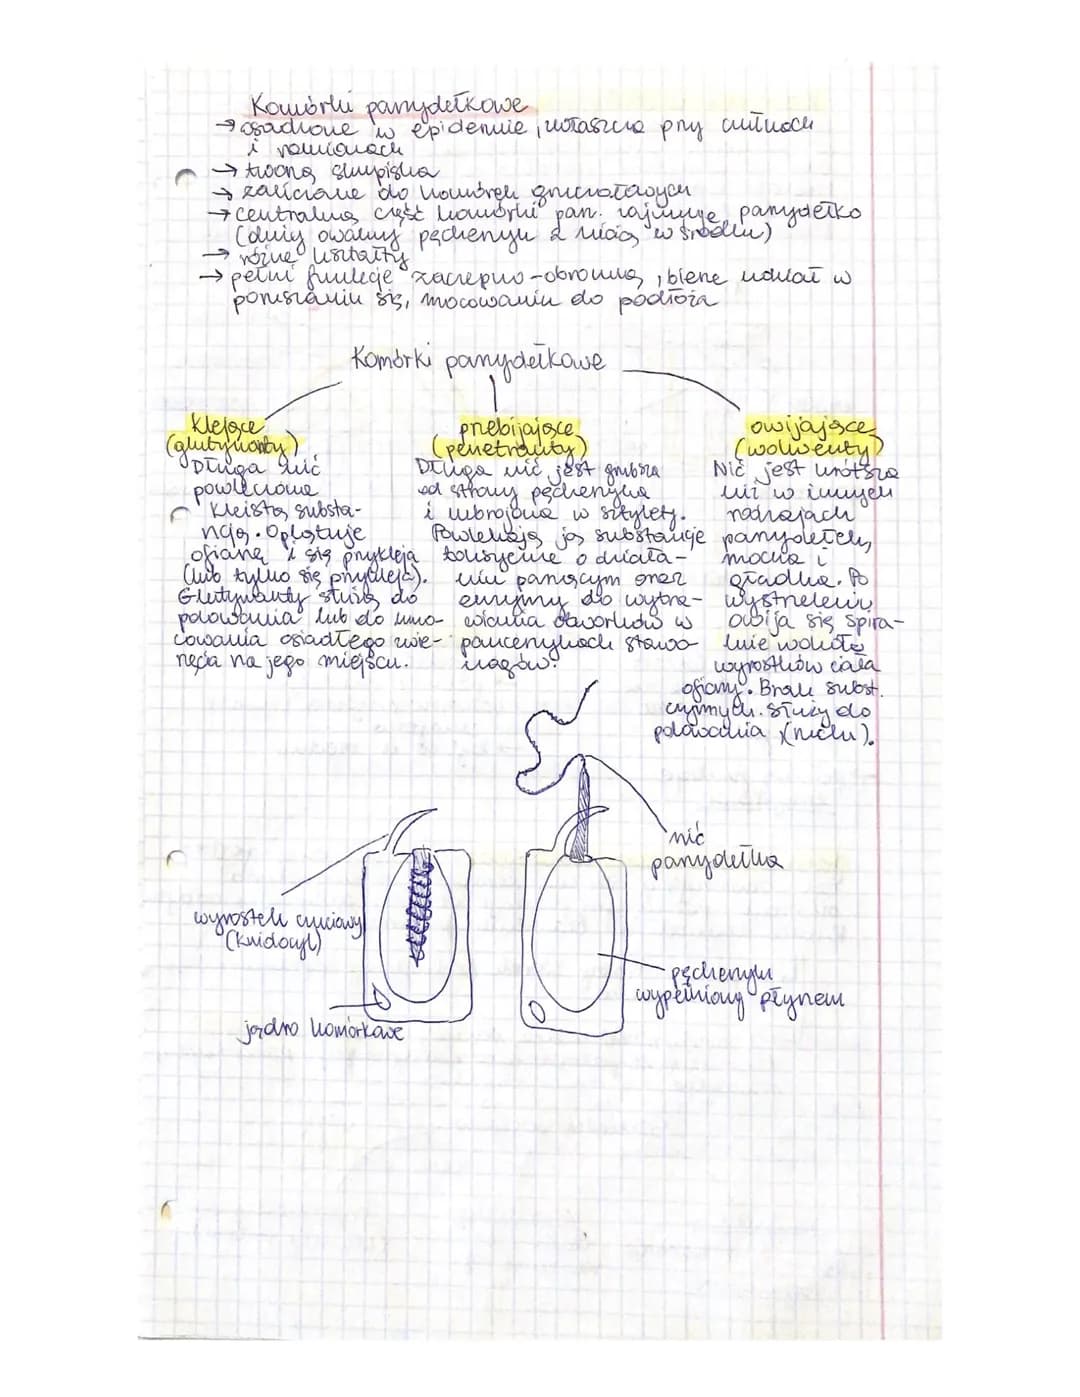 Komórki parzydełkowe
→ osadzone w epidermie, zwłaszcza przy czułkach
i ramionach
→ tworzą skupiska
→ zaliczane do komórek zmysłowych
→ centralną część komórki parz. zajmuje parzydełko
(duży owalny pęcherzyk z nicią w środku)
→ różne kształty
→ pełni funkcje zaczepno-obronną, bierze udział w
poruszaniu się, mocowaniu do podłoża
Komórki parzydełkowe
klejące
(glutynanty)
Długa nić
powleczona
kleistą substa-
ncją. Oplątuje
ofiarę i się przykleja
(lub tylko się przykleja).
Glutynanty służą do
polowania lub do umo-
cowania osiadłego zwie-
rzęcia na jego miejscu.
przebijające
(penetranty)
Długa nić jest grubsza
od strony pęcherzyka
i uzbrojona w sztylety.
Powlekają ją substancje
toksyczne o działa-
niu parzącym oraz
enzymy do wytra-
wiania otworków w
pancerzykach stawo-
nogów.
owijające
(wolwenty)
Nić jest krótsza
niż w innych
rodzajach
parzydełek,
mocna i
gładka. Po
wystrzeleniu
owija się spira-
lnie wokół
wyrostków ciała
ofiary. Brak subst.
czynnych. Służy do
polowania (ruchu).
nić
parzydełka
wyrostek czuciowy
(knidocyl)
pęcherzyk
wypełniony płynem
jądro komórkowe